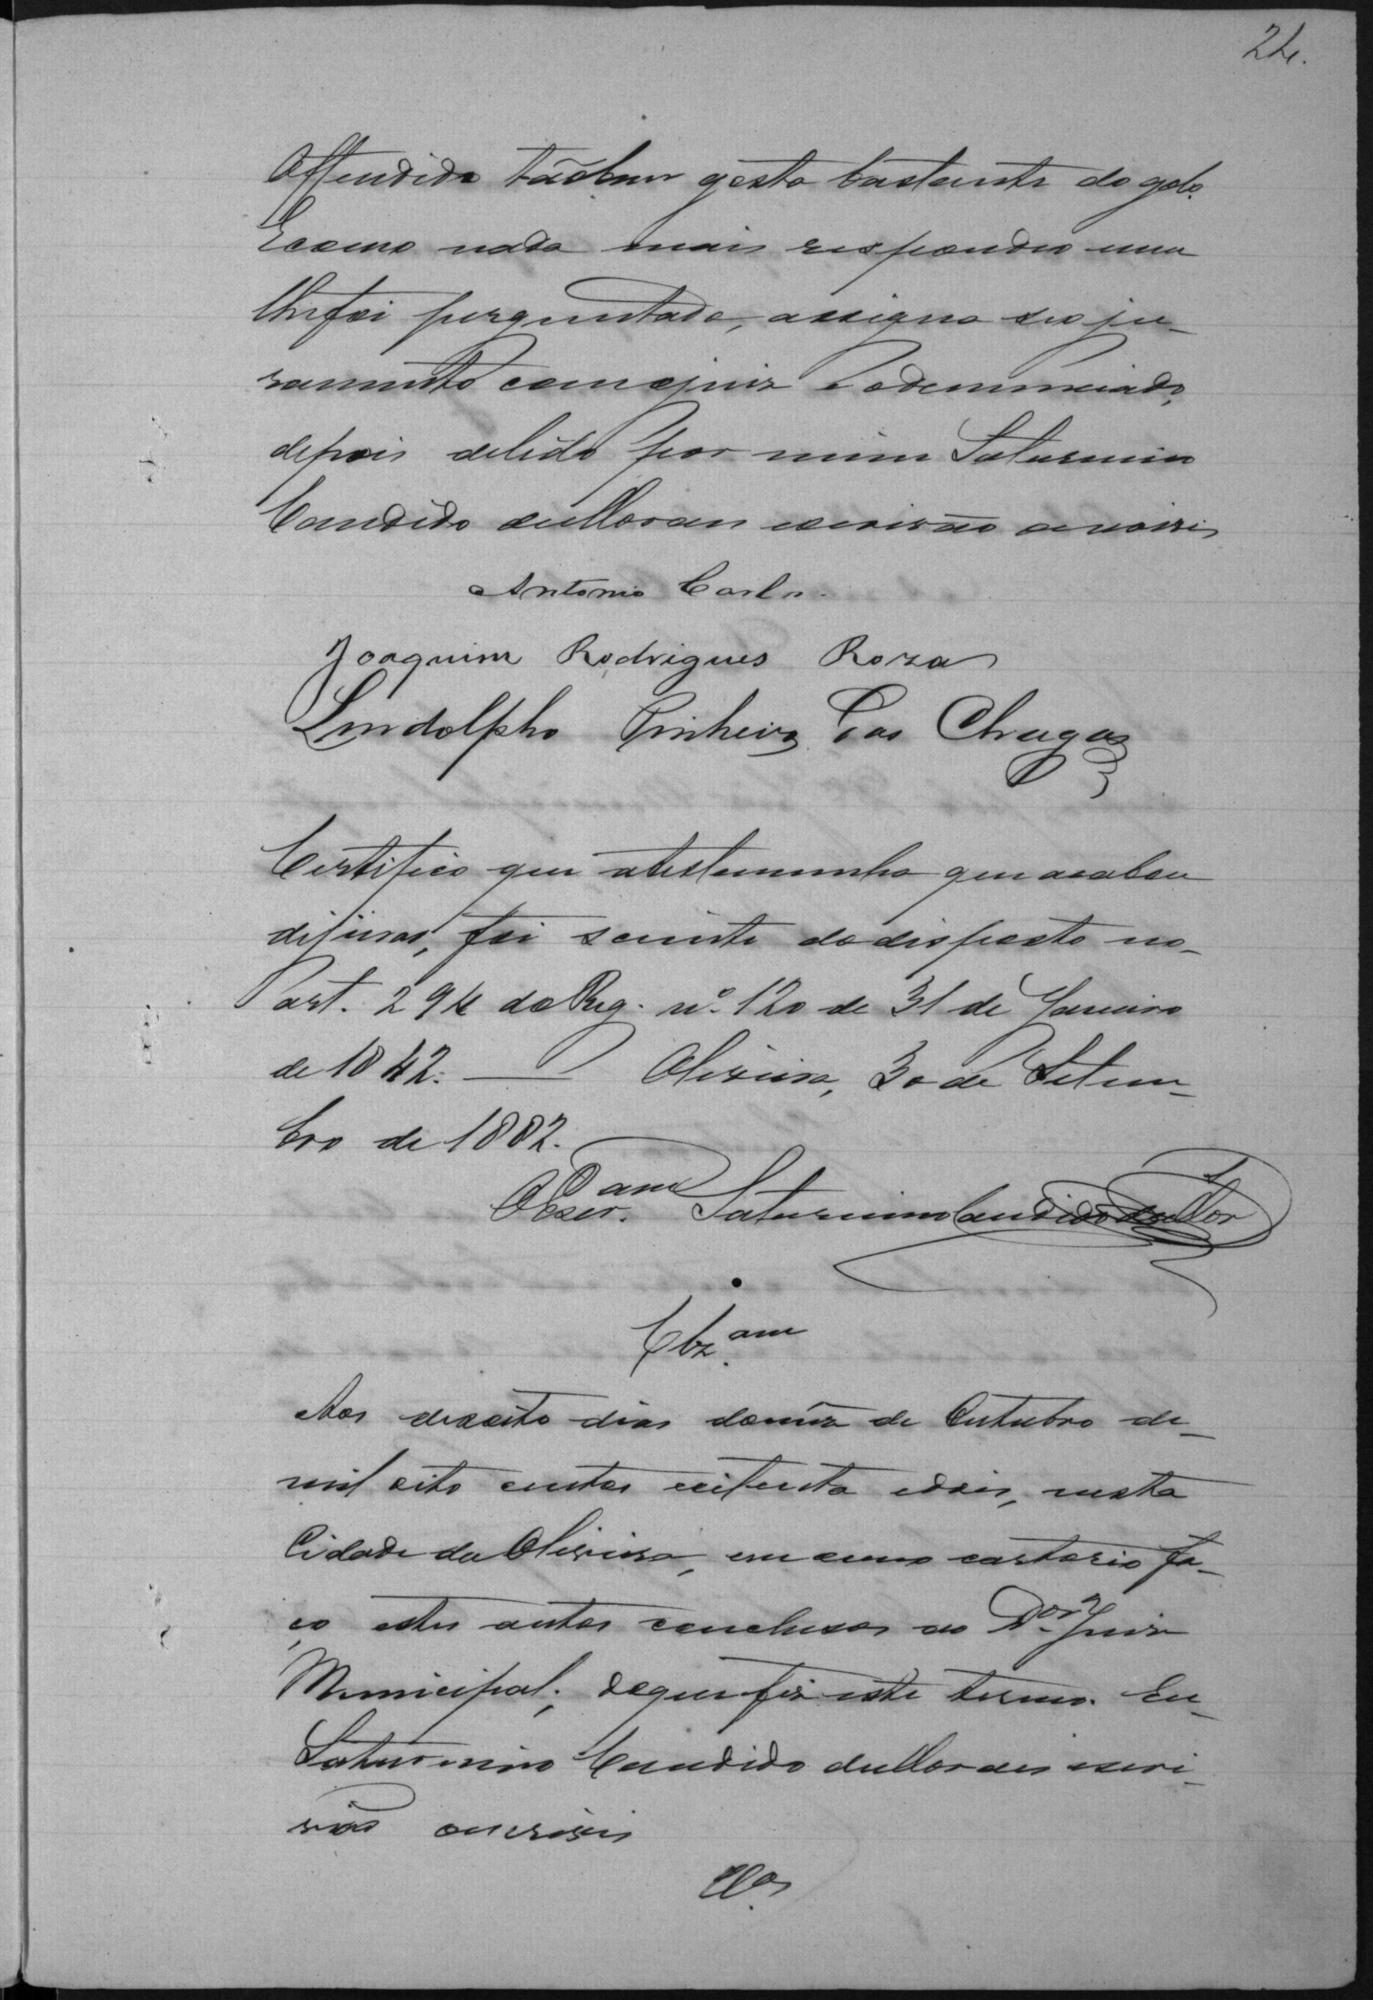 24.
Offendido tãobem gosta bastante do golo.
E como nada mais respondeo nem
lhe foi perguntado, assigna seo ju-
ramento com o juiz e o denunciado,
depois de lido por mim Saturnino
Candido de Moraes escrivão o escrivi
Antonio Carlos.
Joaquim Rodrigues Roza
Lindolpho Pinheiro das Chagas
Certifico que a testemunha que acabou
de jurar, foi sciente do disposto no
art. 294 do Reg. nº 120 de 31 de Janeiro
de 1842. — Oliveira, 30 de Setem-
bro de 1882.
O Escr.am Saturnino Candido de Mor
Clz.am
Aos dezoito dias do mez de Outubro de
mil oito centos e oitenta e dois, nesta
Cidade de Oliveira, em meu cartorio fa-
ço estes autos conclusos ao D.or Juiz
Municipal; de que fiz este termo. Eu
Saturnino Candido de Moraes escri-
vão o escrivi
Cl.os